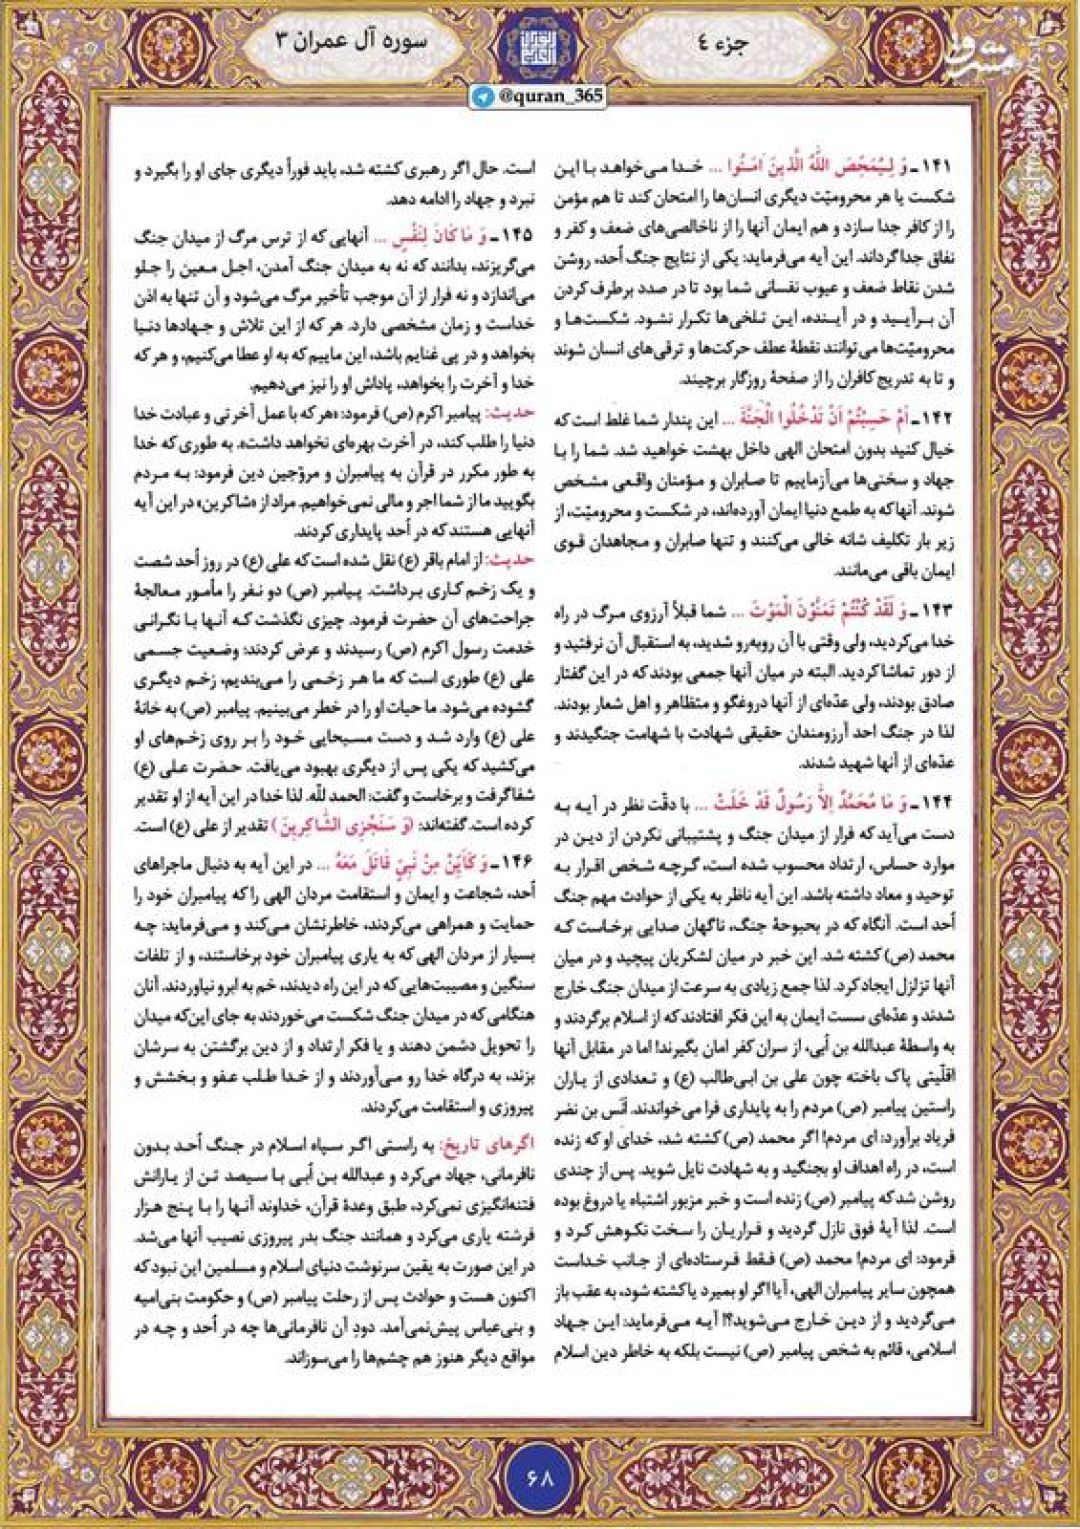 جزء ۴
سوره آل عمران ۳
@quran_365
۱۴۱ـ وَ لِيُمَحِّصَ اللَّهُ الَّذينَ آمَنُوا ... خدا می‌خواهد با این
شکست یا هر محرومیّت دیگری انسان‌ها را امتحان کند تا هم مؤمن
را از کافر جدا سازد و هم ایمان آنها را از ناخالصی‌های ضعف و کفر و
نفاق جدا گرداند. این آیه می‌فرماید: یکی از نتایج جنگ اُحد، روشن
شدن نقاط ضعف و عیوب نفسانی شما بود تا در صدد برطرف کردن
آن برآیید و در آینده، این تلخی‌ها تکرار نشود. شکست‌ها و
محرومیّت‌ها می‌توانند نقطهٔ عطف حرکت‌ها و ترقی‌های انسان شوند
و تا به تدریج کافران را از صفحهٔ روزگار برچیند.
۱۴۲ـ اَمْ حَسِبْتُمْ اَنْ تَدْخُلُوا الْجَنَّةَ ... این پندار شما غلط است که
خیال کنید بدون امتحان الهی داخل بهشت خواهید شد. شما را با
جهاد و سختی‌ها می‌آزماییم تا صابران و مؤمنان واقعی مشخص
شوند. آنها که به طمع دنیا ایمان آورده‌اند، در شکست و محرومیّت، از
زیر بار تکلیف شانه خالی می‌کنند و تنها صابران و مجاهدان قوی
ایمان باقی می‌مانند.
۱۴۳ـ وَ لَقَدْ كُنْتُمْ تَمَنَّوْنَ الْمَوْتَ ... شما قبلاً آرزوی مرگ در راه
خدا می‌کردید، ولی وقتی با آن روبه‌رو شدید، به استقبال آن نرفتید و
از دور تماشا کردید. البته در میان آنها جمعی بودند که در این گفتار
صادق بودند، ولی عدّه‌ای از آنها دروغگو و متظاهر و اهل شعار بودند.
لذا در جنگ احد آرزومندان حقیقی شهادت با شهامت جنگیدند و
عدّه‌ای از آنها شهید شدند.
۱۴۴ـ وَ مَا مُحَمَّدٌ اِلاَّ رَسُولٌ قَدْ خَلَتْ ... با دقّت نظر در آیه به
دست می‌آید که فرار از میدان جنگ و پشتیبانی نکردن از دین در
موارد حساس، ارتداد محسوب شده است، گرچه شخص اقرار به
توحید و معاد داشته باشد. این آیه ناظر به یکی از حوادث مهم جنگ
اُحد است. آنگاه که در بحبوحهٔ جنگ، ناگهان صدایی برخاست که
محمد (ص) کشته شد. این خبر در میان لشکریان پیچید و در میان
آنها تزلزل ایجاد کرد. لذا جمع زیادی به سرعت از میدان جنگ خارج
شدند و عدّه‌ای سست ایمان به این فکر افتادند که از اسلام برگردند و
به واسطهٔ عبدالله بن اُبی، از سران کفر امان بگیرند! اما در مقابل آنها
اقلّیتی پاک باخته چون علی بن ابی‌طالب (ع) و تعدادی از یاران
راستین پیامبر (ص) مردم را به پایداری فرا می‌خواندند. اَنَس بن نضر
فریاد برآورد: ای مردم! اگر محمد (ص) کشته شد، خدای او که زنده
است، در راه اهداف او بجنگید و به شهادت نایل شوید. پس از چندی
روشن شد که پیامبر (ص) زنده است و خبر مزبور اشتباه یا دروغ بوده
است. لذا آیهٔ فوق نازل گردید و فراریان را سخت نکوهش کرد و
فرمود: ای مردم! محمد (ص) فقط فرستاده‌ای از جانب خداست
همچون سایر پیامبران الهی، آیا اگر او بمیرد یا کشته شود، به عقب باز
می‌گردید و از دین خارج می‌شوید؟! آیه می‌فرماید: این جهاد
اسلامی، قائم به شخص پیامبر (ص) نیست بلکه به خاطر دین اسلام
است. حال اگر رهبری کشته شد، باید فوراً دیگری جای او را بگیرد و
نبرد و جهاد را ادامه دهد.
۱۴۵ـ وَ مَا كَانَ لِنَفْسٍ ... آنهایی که از ترس مرگ از میدان جنگ
می‌گریزند، بدانند که نه به میدان جنگ آمدن، اجل معین را جلو
می‌اندازد و نه فرار از آن موجب تأخیر مرگ می‌شود و آن تنها به اذن
خداست و زمان مشخصی دارد. هر که از این تلاش و جهادها دنیا
بخواهد و در پی غنایم باشد، این ماییم که به او عطا می‌کنیم، و هر که
خدا و آخرت را بخواهد، پاداش او را نیز می‌دهیم.
حدیث: پیامبر اکرم (ص) فرمود: «هر که با عمل آخرتی و عبادت خدا
دنیا را طلب کند، در آخرت بهره‌ای نخواهد داشت». به طوری که خدا
به طور مکرر در قرآن به پیامبران و مروّجین دین فرمود: به مردم
بگویید ما از شما اجر و مالی نمی‌خواهیم. مراد از «شاکرین» در این آیه
آنهایی هستند که در اُحد پایداری کردند.
حدیث: از امام باقر (ع) نقل شده است که علی (ع) در روز اُحد شصت
و یک زخم کاری برداشت. پیامبر (ص) دو نفر را مأمور معالجهٔ
جراحت‌های آن حضرت فرمود. چیزی نگذشت که آنها با نگرانی
خدمت رسول اکرم (ص) رسیدند و عرض کردند: وضعیت جسمی
علی (ع) طوری است که ما هر زخمی را می‌بندیم، زخم دیگری
گشوده می‌شود. ما حیات او را در خطر می‌بینیم. پیامبر (ص) به خانهٔ
علی (ع) وارد شد و دست مسیحایی خود را بر روی زخم‌های او
می‌کشید که یکی پس از دیگری بهبود می‌یافت. حضرت علی (ع)
شفا گرفت و برخاست و گفت: الحمد للّه. لذا خدا در این آیه از او تقدیر
کرده است. گفته‌اند: (وَ سَنَجْزِى الشَّاكِرينَ) تقدیر از علی (ع) است.
۱۴۶ـ وَ كَأَيِّنْ مِنْ نَبِىٍّ قَاتَلَ مَعَهُ ... در این آیه به دنبال ماجراهای
اُحد، شجاعت و ایمان و استقامت مردان الهی را که پیامبران خود را
حمایت و همراهی می‌کردند، خاطرنشان می‌کند و می‌فرماید: چه
بسیار از مردان الهی که به یاری پیامبران خود برخاستند، و از تلفات
سنگین و مصیبت‌هایی که در این راه دیدند، خم به ابرو نیاوردند. آنان
هنگامی که در میدان جنگ شکست می‌خوردند به جای این‌که میدان
را تحویل دشمن دهند و یا فکر ارتداد و از دین برگشتن به سرشان
بزند، به درگاه خدا رو می‌آوردند و از خدا طلب عفو و بخشش و
پیروزی و استقامت می‌کردند.
اگرهای تاریخ: به راستی اگر سپاه اسلام در جنگ اُحد بدون
نافرمانی، جهاد می‌کرد و عبدالله بن اُبی با سیصد تن از یارانش
فتنه‌انگیزی نمی‌کرد، طبق وعدهٔ قرآن، خداوند آنها را با پنج هزار
فرشته یاری می‌کرد و همانند جنگ بدر پیروزی نصیب آنها می‌شد.
در این صورت به یقین سرنوشت دنیای اسلام و مسلمین این نبود که
اکنون هست و حوادث پس از رحلت پیامبر (ص) و حکومت بنی‌امیه
و بنی‌عباس پیش نمی‌آمد. دودِ آن نافرمانی‌ها چه در اُحد و چه در
مواقع دیگر هنوز هم چشم‌ها را می‌سوزاند.
۶۸